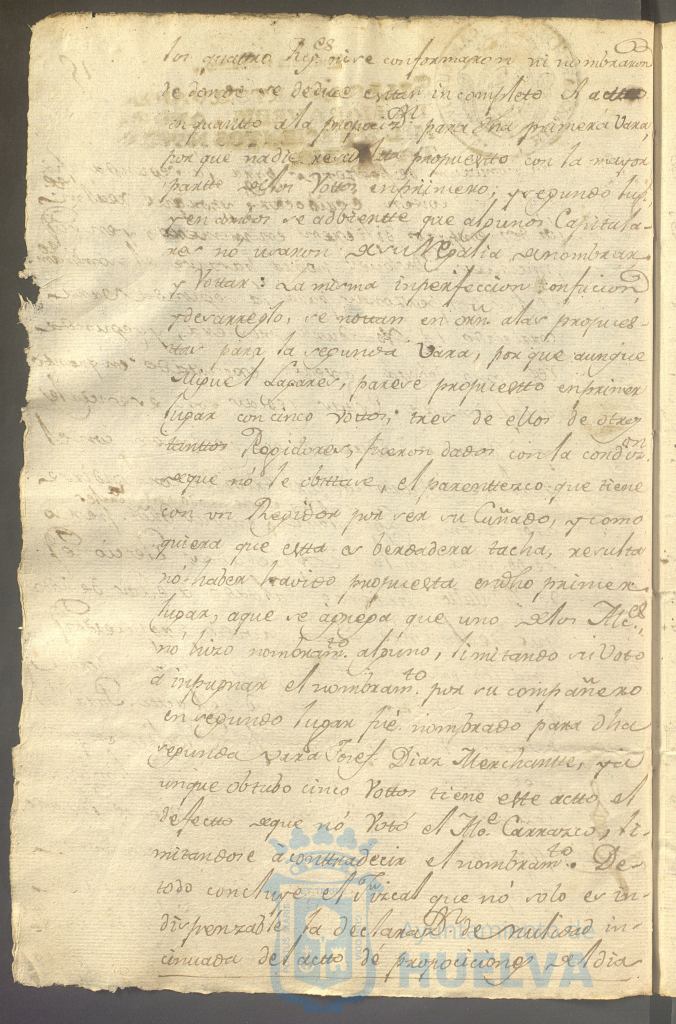 los quattro Reg.es ni se conformaron ni nombraron
de donde se deduce estar incompleto el actto
en quantto a la proposiz.on para dha primera Vara,
por que nadie resulta propuestto con la mayor
partte de los Vottos en primero, y segundo lug.r
y en ambos se adbiertte que algunos Capitula-
res no usaron de su Regalia de nombrar
y Vottar: La misma imperfeccion confucion,
y desarreglo, se nottan en orn a las propues-
ttas para la segunda Vara, por que aunque
Miguel Lagares, parese propuestto en primer
lugar con cinco vottos, tres de ellos de otros
tanttos Regidores, fueron dados con la condiz.on
de que nó le obsttase, el parenttezco que tiene
con un Regidor por ser su Cuñado, y como
quiera que estta es berdadera tacha, resulta
no haber havido propuesta en dho primer
lugar, a que se agrega que uno de los Alc.es
nó hizo nombram.to alguno, limitando su Voto
á impugnar el nombram.to por su compañero
en segundo lugar fué nombrado para dha
segunda vara Josef Diaz Merchantte, y a
unque obtubo cinco Vottos tiene este actto el
defecto de que nó Votó el Alc.e Carrazco, li-
mitandose á conttradecir el nombram.to. De
todo concluye el Fiscal que nó solo es in-
dispenzable la declaraz.on de nulidad in-
cinuada del actto de proposiciones del dia
Ayuntamiento de
HUELVA